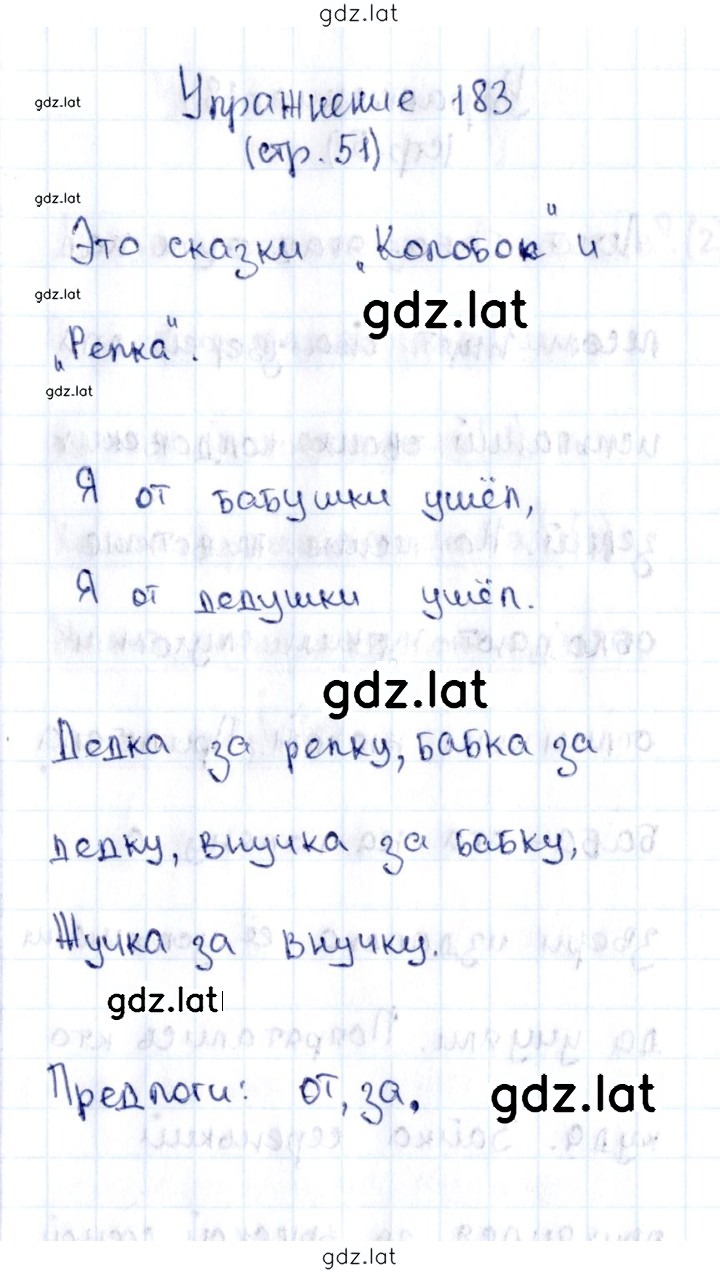 gdz.lat
gdz.lat
Упражнение 183
(стр. 51)
gdz.lat
Это сказки „Колобок" и
gdz.lat
gdz.lat
„Репка".
gdz.lat
Я от бабушки ушёл,
Я от дедушки ушёл.
gdz.lat
Дедка за репку, бабка за
дедку, внучка за бабку,
Жучка за внучку.
gdz.lat
Предлоги: от, за.
gdz.lat
gdz.lat